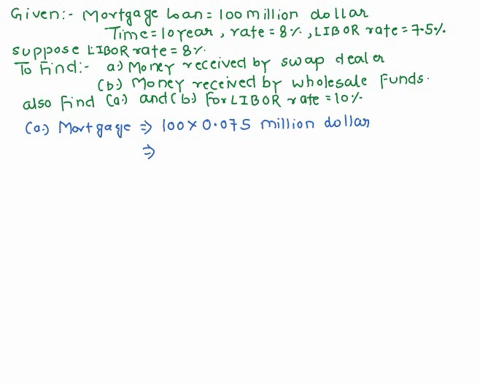 Given:- Mortgage Loan = 100 million dollar
Time = 10 year, rate = 8%, LIBOR rate = 7.5%
suppose LIBOR rate = 8%
To Find:- a.) Money received by swap dealer
(b.) Money received by wholesale Funds.
also Find (a.) and (b.) For LIBOR rate = 10%
(a.) Mortgage ⇒ 100 × 0.075 million dollar
⇒